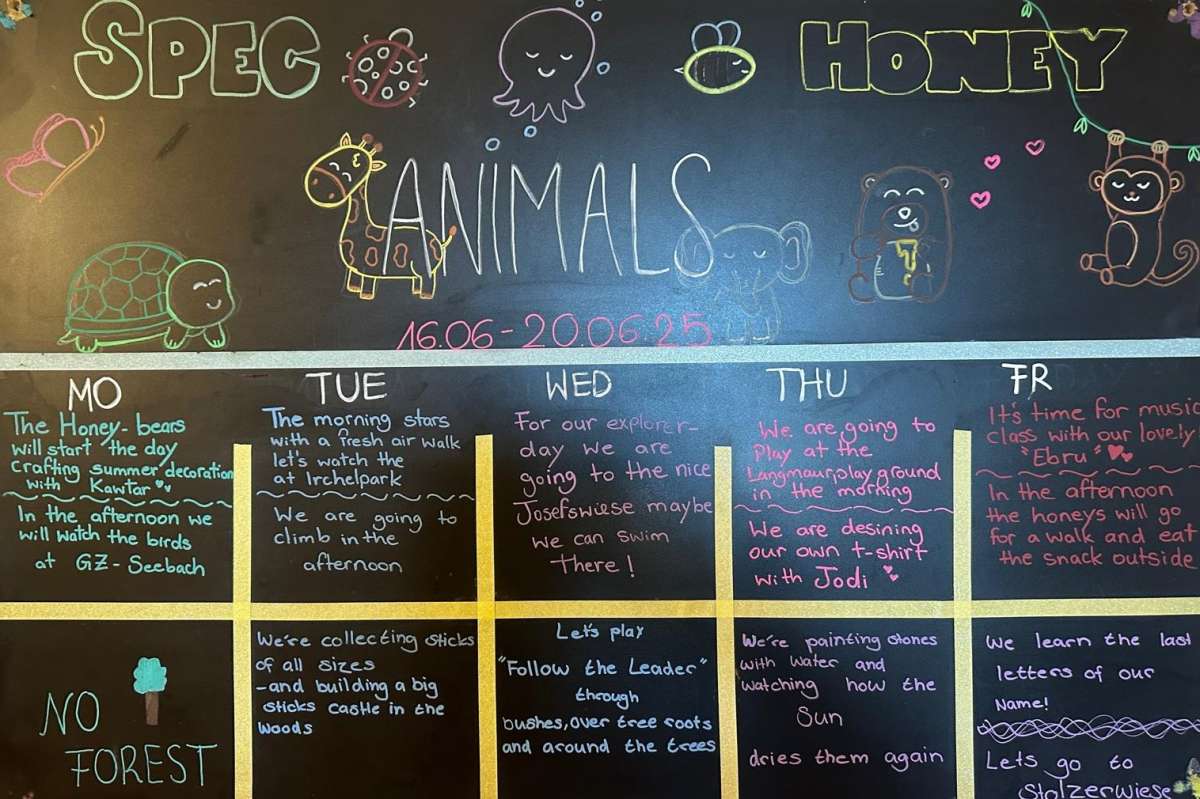 SPEC HONEY
ANIMALS
16.06-20.06.25
MO
The Honey-bears
will start the day
crafting summer decoration
with Kawtar
In the afternoon we
will watch the birds
at GZ-Seebach
TUE
The morning stars
with a fresh air walk
let's watch the
at Irchelpark
We are going to
climb in the
afternoon
WED
For our explorer-
day we are
going to the nice
Josefswiese maybe
we can swim
There!
THU
We are going to
Play at the
Langmaur,playground
in the morning
We are desining
our own t-shirt
with Jodi
FR
It's time for music
class with our lovely
"Ebru"
In the afternoon
the honeys will go
for a walk and eat
the snack outside
NO
FOREST
We're collecting sticks
of all sizes
-and building a big
sticks castle in the
woods
Let's play
"Follow the Leader"
through
bushes, over tree roots
and around the trees
We're painting stones
with water and
watching how the
Sun
dries them again
We learn the last
letters of our
Name!
Lets go to
Stolzerwiese